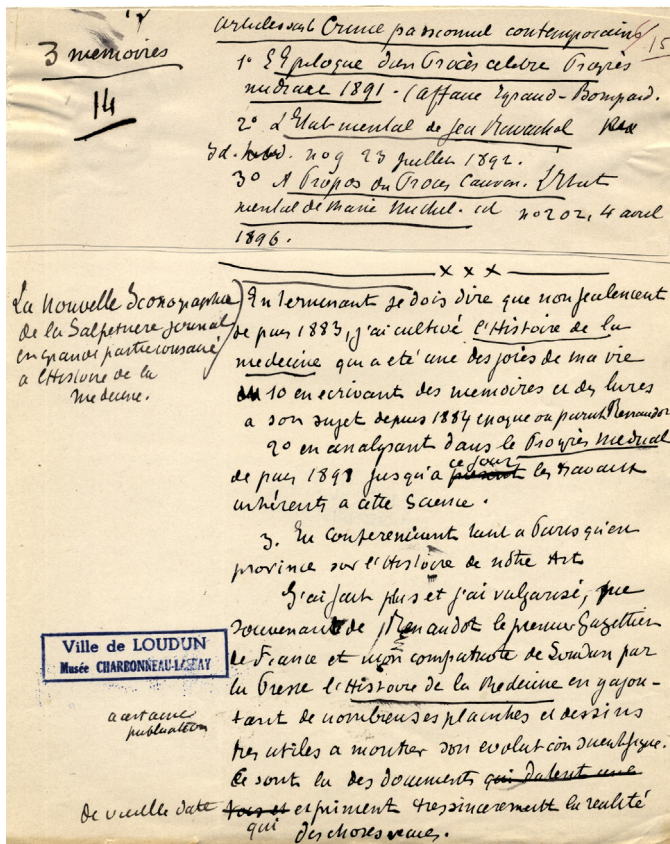 3 memoires
14
articles sur le Crime passionnel contemporain
15
1° Epilogue d'un Procès celebre Progrès
medical 1891 - (affaire Eyraud-Bompard.
2° L'Etat mental de Jea Ravachol
Id. no 9 23 juillet 1892.
3° A Propos du Proces Cauvin. L'Etat
mental de Marie Michel. id no 202, 4 avril
1896.
x x x
La Nouvelle Iconographie
de la Salpetriere journal
en grande partie consacré
a l'Histoire de la
medecine.
En terminant je dois dire que non seulement
depuis 1883, j'ai cultivé l'Histoire de la
medecine qui a été une des joies de ma vie
1o en ecrivant des memoires et des livres
a son sujet depuis 1884 epoque ou parut Renaudot
2° en analysant dans le Progrès medical
depuis 1891 jusqu'a ce jour les travaux
inhérents a cette Science.
3. En conferenciant tant a Paris qu'en
province sur l'Histoire de notre Art
J'ai fait plus et j'ai vulgarisé, me
souvenant de Renaudot le premier Gazettier
de France et mon compatriote de Loudun par
la Presse l'Histoire de la Medecine en y ajou-
tant de nombreuses planches et dessins
tres utiles a montrer son evolution scientifique.
Ce sont la des documents qui datent une
Ville de LOUDUN
Musée CHARBONNEAU-LASSAY
a certaine
publication
de vieille date qui expriment tres sincerement la realité
des choses vecues.